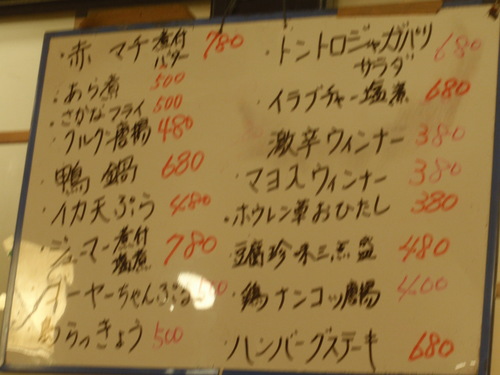 ・赤マチ 煮付 バター 780
・あら煮 500
・さかなフライ 500
・グルクン唐揚 480
・鴨鍋 680
・イカ天ぷら 480
・シューマー 煮付 塩煮 780
ーヤーちゃんぷる
らっきょう 500
・トントロジャガバリ サラダ 680
・イラブチャー塩煮 680
激辛ウィンナー 380
・マヨ入ウィンナー 380
・ホウレン草おひたし 380
豆腐珍味三点盛 480
・鶏ナンコツ唐揚 400
・ハンバーグステーキ 680